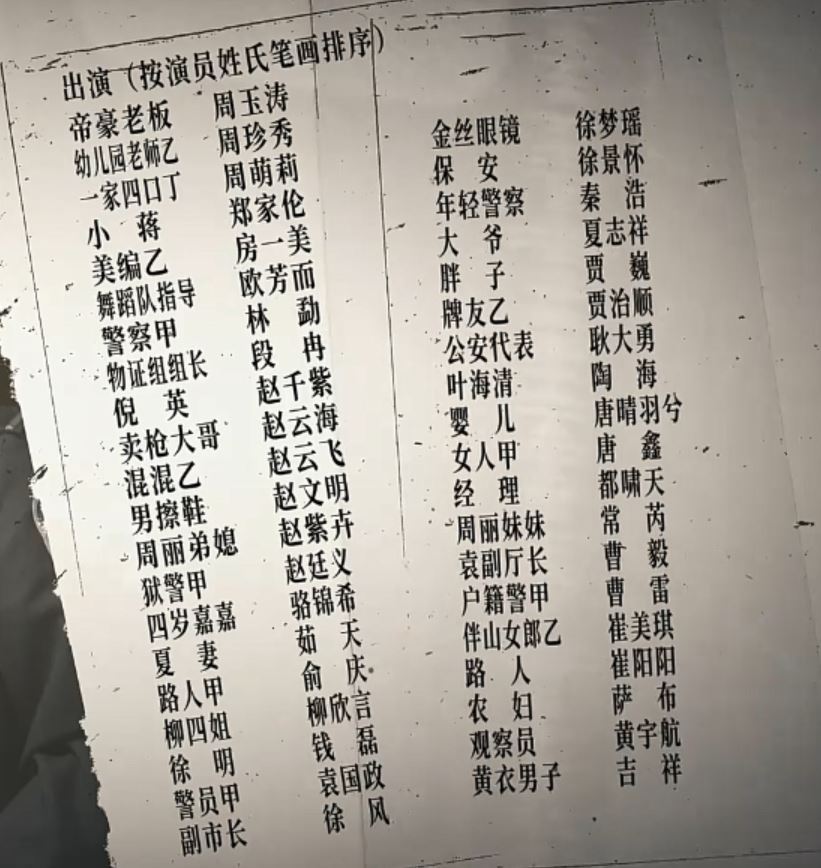 出演（按演员姓氏笔画排序）
帝豪老板 周玉涛
幼儿园老师乙 周珍秀
一家四口丁 周萌莉
小 蒋 郑家伦
美编乙 房一美
舞蹈队指导 欧芳而
警察甲 林 勐
物证组组长 段 冉
倪 英 赵千紫
卖枪大哥 赵云海
混混乙 赵云飞
男擦鞋 赵文明
周丽弟媳 赵紫卉
狱警甲 赵廷义
四岁嘉嘉 骆锦希
夏 妻 茹 天
路人甲 俞 庆
柳四姐 柳欣言
徐 明 钱 磊
警员甲 袁国政
副市长 徐 风
金丝眼镜 徐梦瑶
保 安 徐景怀
年轻警察 秦 浩
大 爷 夏志祥
胖 子 贾 巍
牌友乙 贾治顺
公安代表 耿大勇
叶海清 陶 海
婴 儿 唐晴羽兮
女人甲 唐 鑫
经 理 都啸天
周丽妹妹 常 芮
袁副厅长 曹 毅
户籍警甲 曹 雷
伴山女郎乙 崔美琪
路 人 崔阳阳
农 妇 萨 布
观察员 黄宇航
黄衣男子 吉 祥